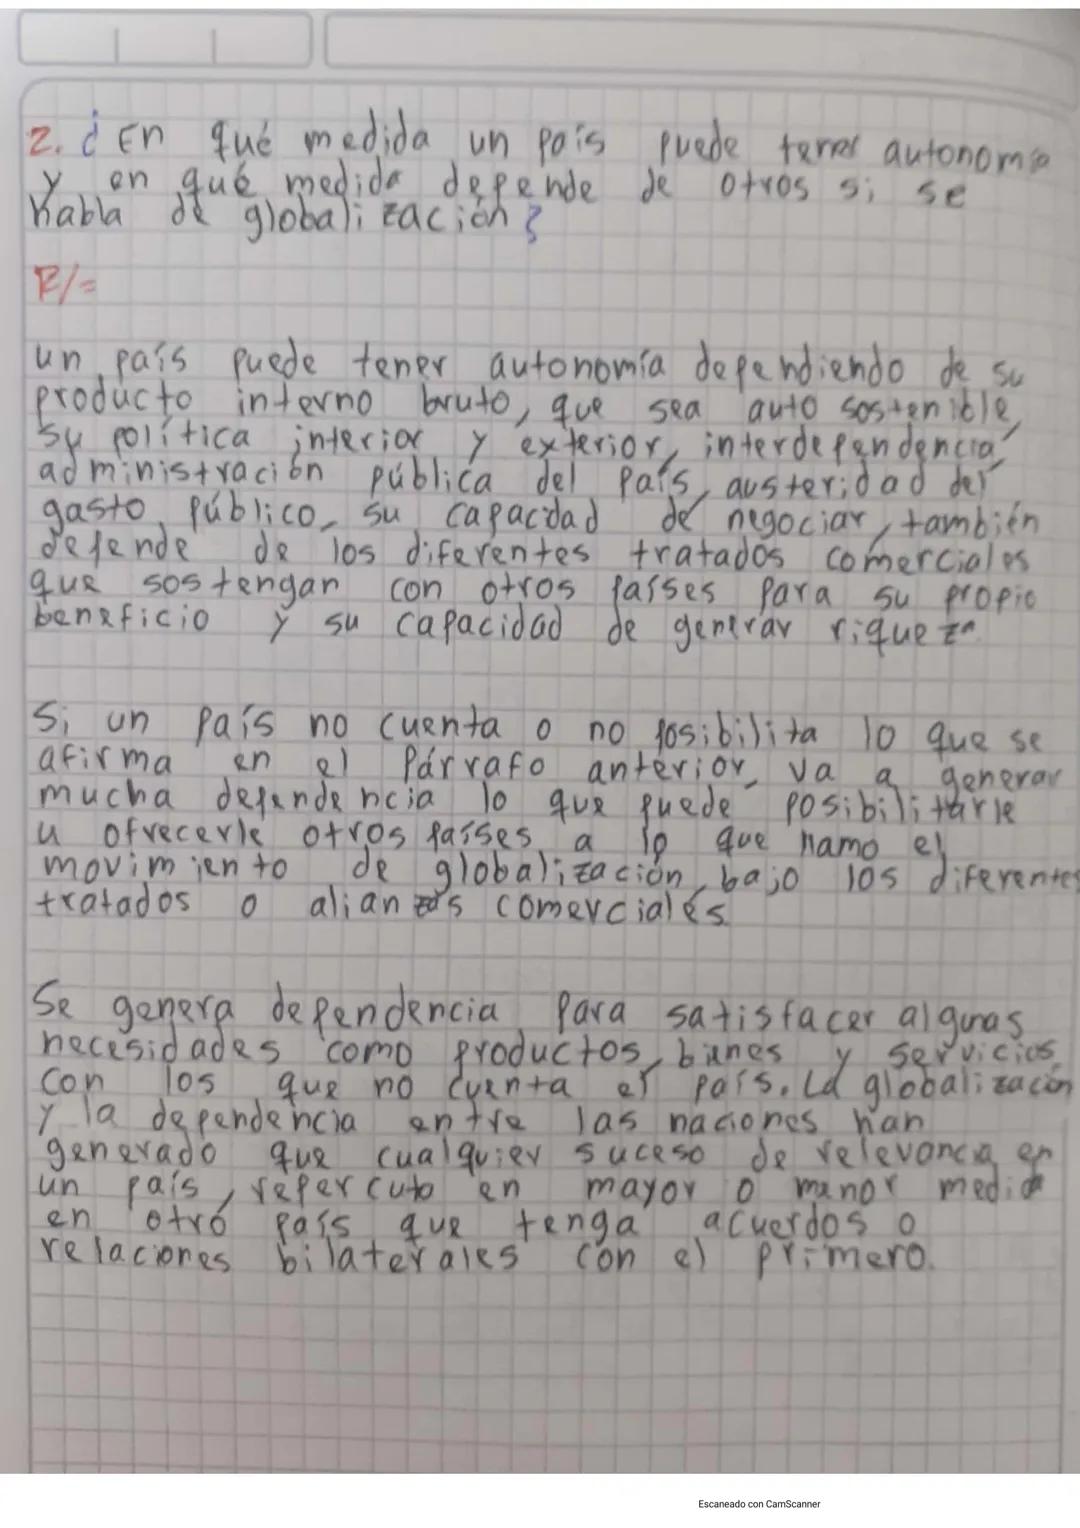 2. ¿En qué medida un país puede tener autonomía
y en qué medida depende de otros si se
habla de globalización?
R/=
un país puede tener autonomía dependiendo de su
producto interno bruto, que sea auto sostenible,
su política interior y exterior, interdependencia,
administración pública del país, austeridad del
gasto público, su capacidad de negociar, también
depende de los diferentes tratados comerciales
que sostengan con otros países para su propio
beneficio y su capacidad de generar riqueza
Si un país no cuenta o no posibilita lo que se
afirma en el Párrafo anterior, va a generar
mucha dependencia lo que puede posibilitarle
u ofrecerle otros países a lo que llamo el
movimiento de globalización, bajo los diferentes
tratados o alianzas comerciales.
Se genera dependencia para satisfacer algunas
necesidades como productos, bienes y servicios
con los que no cuenta el país. La globalización
y la dependencia entre las naciones han
generado que cualquier suceso de relevancia en
un país, repercuta en mayor o menor medida
en otro país que tenga acuerdos o
relaciones bilaterales con el primero.
Escaneado con CamScanner